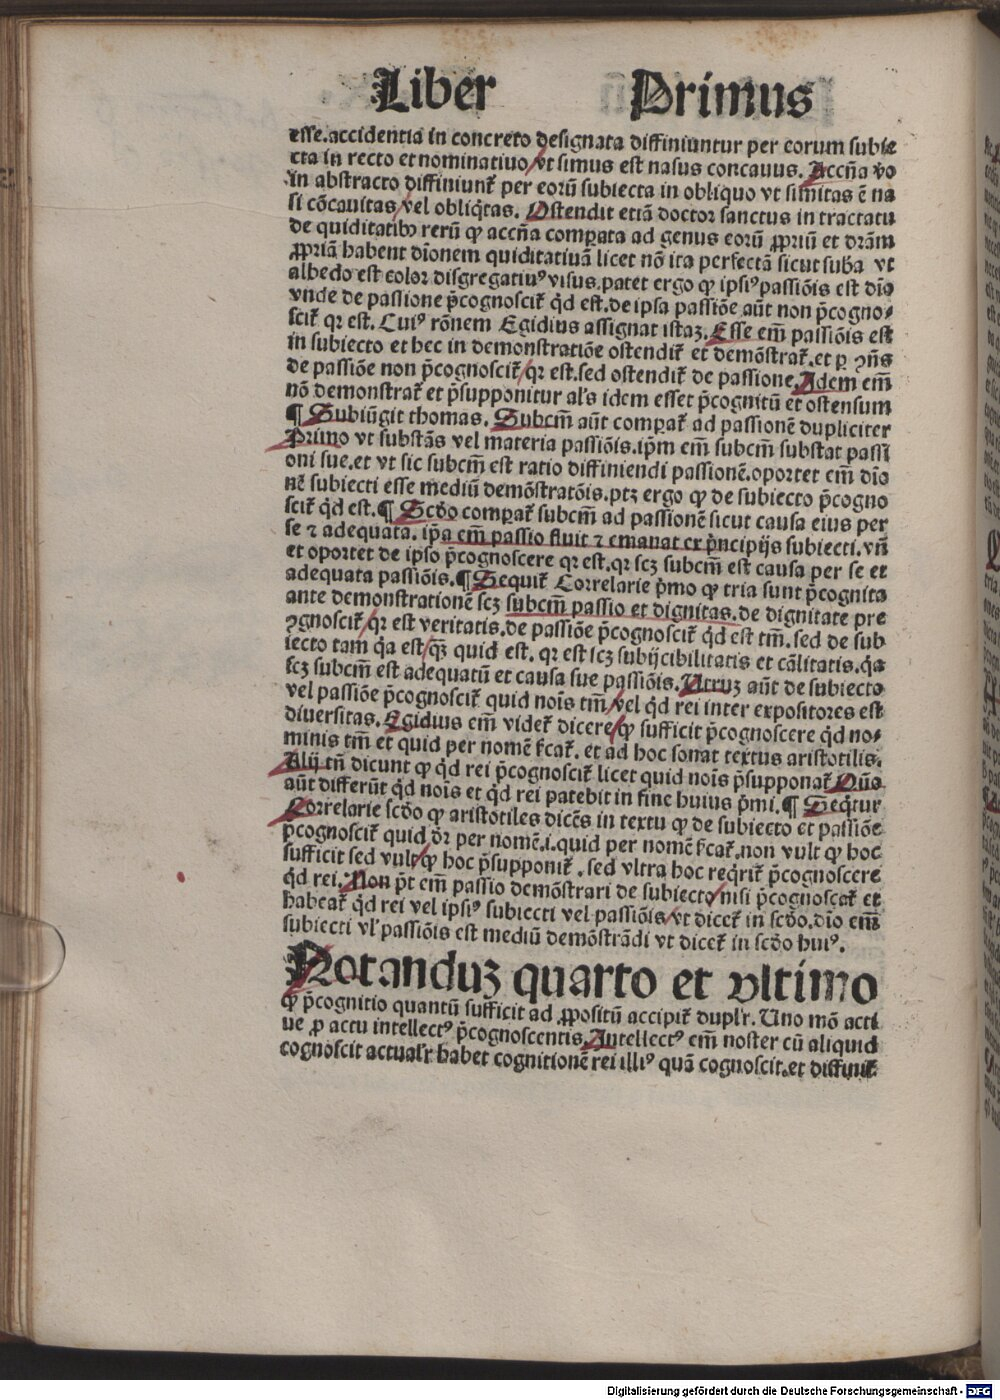 Liber Primus
esse.accidentia in concreto designata diffiniuntur per eorum subie
cta in recto et nominatiuo/vt simus est nasus concauus. Accn̄a v̄o
in abstracto diffiniunt̄ per eorū subiecta in obliquo vt simitas ē na
si cōcauitas/vel obliq̄tas. Ostendit etiā doctor sanctus in tractatu
de quiditatibꝰ rerū ꝙ accn̄a compata ad genus eorū ꝓpriū et dr̄am
ꝓpriā habent dīonem quiditatiuā licet nō ita perfectā sicut suba vt
albedo est color disgregatiuꝰ visus.patet ergo ꝙ ipsiꝰ passiōis est dīo
vnde de passione p̄cognoscit̄ q̄d est.de ipsa passiōe aūt non p̄cogno⸗
scit̄ qr est. Cuiꝰ rōnem Egidius assignat istaꝫ. Esse em̄ passiōis est
in subiecto et hec in demonstratiōe ostendit̄ et demōstrat̄.et ꝑ ꝯn̄s
de passiōe non p̄cognoscit̄/qr est.sed ostendit̄ de passione. Idem em̄
nō demonstrat̄ et p̄supponitur al's idem esset p̄cognitū et ostensum
¶ Subiūgit thomas. Subcm̄ aūt compat̄ ad passionē dupliciter
Primo vt substās vel materia passiōis.ipm̄ em̄ subcm̄ substat passi
oni sue.et vt sic subcm̄ est ratio diffiniendi passionē.oportet em̄ dīo
nē subiecti esse mediū demōstratōis.ptꝫ ergo ꝙ de subiecto p̄cogno
scit̄ q̄d est.¶ Scd̄o compat̄ subcm̄ ad passionē sicut causa eius per
se ⁊ adequata. ip̄a em̄ passio fluit ⁊ emanat ex p̄ncipijs subiecti.vn̄
et oportet de ipso p̄cognoscere qr est.qr scꝫ subcm̄ est causa per se et
adequata passiōis.¶ Sequit̄ Correlarie p̄mo ꝙ tria sunt p̄cognita
ante demonstrationē scꝫ subcm̄ passio et dignitas.de dignitate pre
ꝯgnoscit̄/qr est veritatis.de passiōe p̄cognoscit̄ q̄d est tm̄. sed de sub
iecto tam q̄a est/qꝫ quid est. qr est scꝫ subijcibilitatis et cālitatis.q̄a
scꝫ subcm̄ est adequatū et causa sue passiōis. Vtruꝫ aūt de subiecto
vel passiōe p̄cognoscit̄ quid noīs tm̄/vel q̄d rei inter expositores est
diuersitas. Egidius em̄ videt̄ dicere/ꝙ sufficit p̄cognoscere q̄d no⸗
minis tm̄ et quid per nomē s̄cat̄. et ad hoc sonat textus aristotilis.
Alij tn̄ dicunt ꝙ q̄d rei p̄cognoscit̄ licet quid noīs p̄supponat̄ Quō
aūt differūt q̄d noīs et q̄d rei patebit in fine huius p̄mi.¶ Seq̄tur
Correlarie scd̄o ꝙ aristotiles dicēs in textu ꝙ de subiecto et passiōe
p̄cognoscit̄ quid dr̄ per nomē.i.quid per nomē s̄cat̄.non vult ꝙ hoc
sufficit sed vult/ꝙ hoc p̄supponit̄ . sed vltra hoc req̄rit̄ p̄cognoscere
q̄d rei. Non p̄t em̄ passio demōstrari de subiecto/nisi p̄cognoscat̄ et
habeat̄ q̄d rei vel ipsiꝰ subiecti vel passiōis/vt dicet̄ in scd̄o.dīo em̄
subiecti vl' passiōis est mediū demōstrādi vt dicet̄ in scd̄o huiꝰ.
Notanduꝫ quarto et vltimo
ꝙ p̄cognitio quantū sufficit ad ꝓpositū accipit̄ dupl'r. Uno mō acti
ue ꝓ actu intellectꝰ p̄cognoscentis. Intellectꝰ em̄ noster cū aliquid
cognoscit actual'r habet cognitionē rei illiꝰ quā cognoscit.et diffinit̄
Digitalisierung gefördert durch die Deutsche Forschungsgemeinschaft - DFG